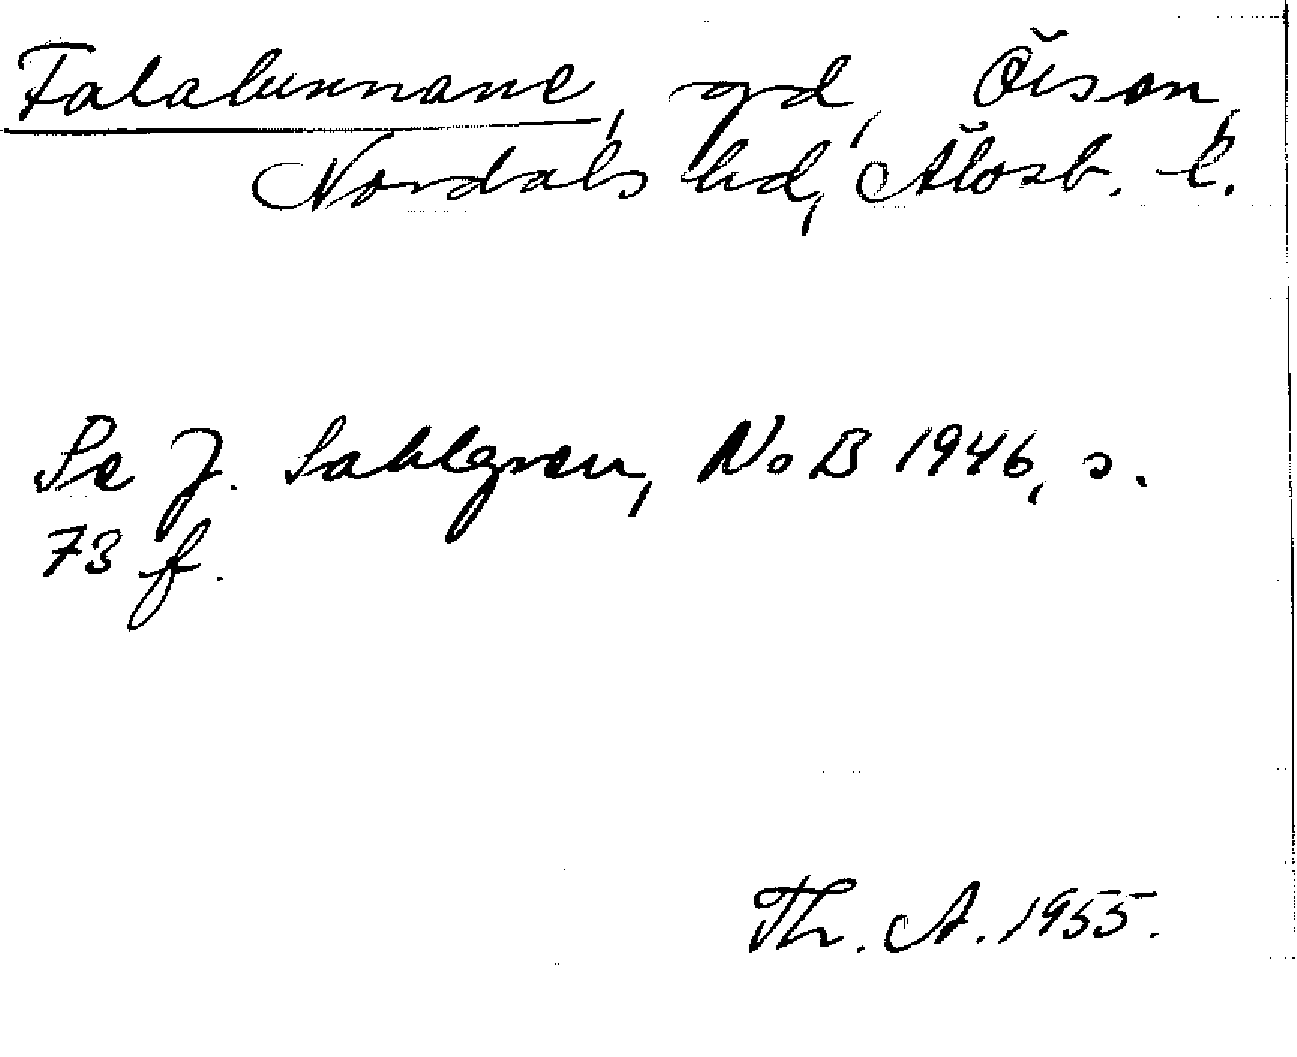 Falabunnane, gd, Ösan,
Nordals hd, Älvsb. l.
Se J. Sahlgren, NoB 1946, s.
73 f.
Th. A. 1955.